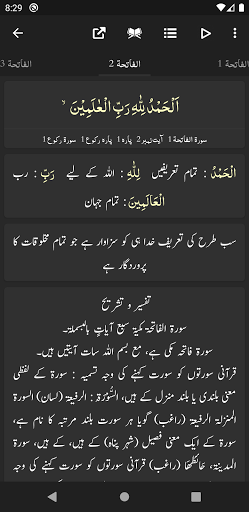 8:29
الفاتحة 1
الفاتحة 2
الفاتحة 3
اَلْحَمْدُ لِلّٰهِ رَبِّ الْعٰلَمِيْنَ ۙ
سورة الفاتحة 1 آیت نمبر 2 پارہ 1 پارہ رکوع 1 سورۃ رکوع 1
الْحَمْدُ : تمام تعریفیں لِلّٰهِ : اللہ کے لیے رَبِّ : رب
الْعَالَمِينَ : تمام جہان
سب طرح کی تعریف خدا ہی کو سزاوار ہے جو تمام مخلوقات کا
پروردگار ہے
تفسیر و تشریح
سورة الفاتحة مكية سبع آيات بالبسملة۔
سورة فاتحہ مکی ہے، مع بسم اللہ سات آیتیں ہیں۔
قرآنی سورتوں کو سورت کہنے کی وجہ تسمیہ : سورۃ کے لفظی
معنی بلندی یا بلند منزل کے ہیں، السُّوْرَة : الرفيعة (لسان) السورة
المنزلة الرفيعة (راغب) گویا ہر سورت بلند مرتبہ کا نام ہے،
سورۃ کے ایک معنی فصیل (شہر پناہ) کے ہیں، کے ہیں، سورۃ
المدينة، حائطها (راغب) قرآنی سورتوں کو سورت کہنے کی وجہ